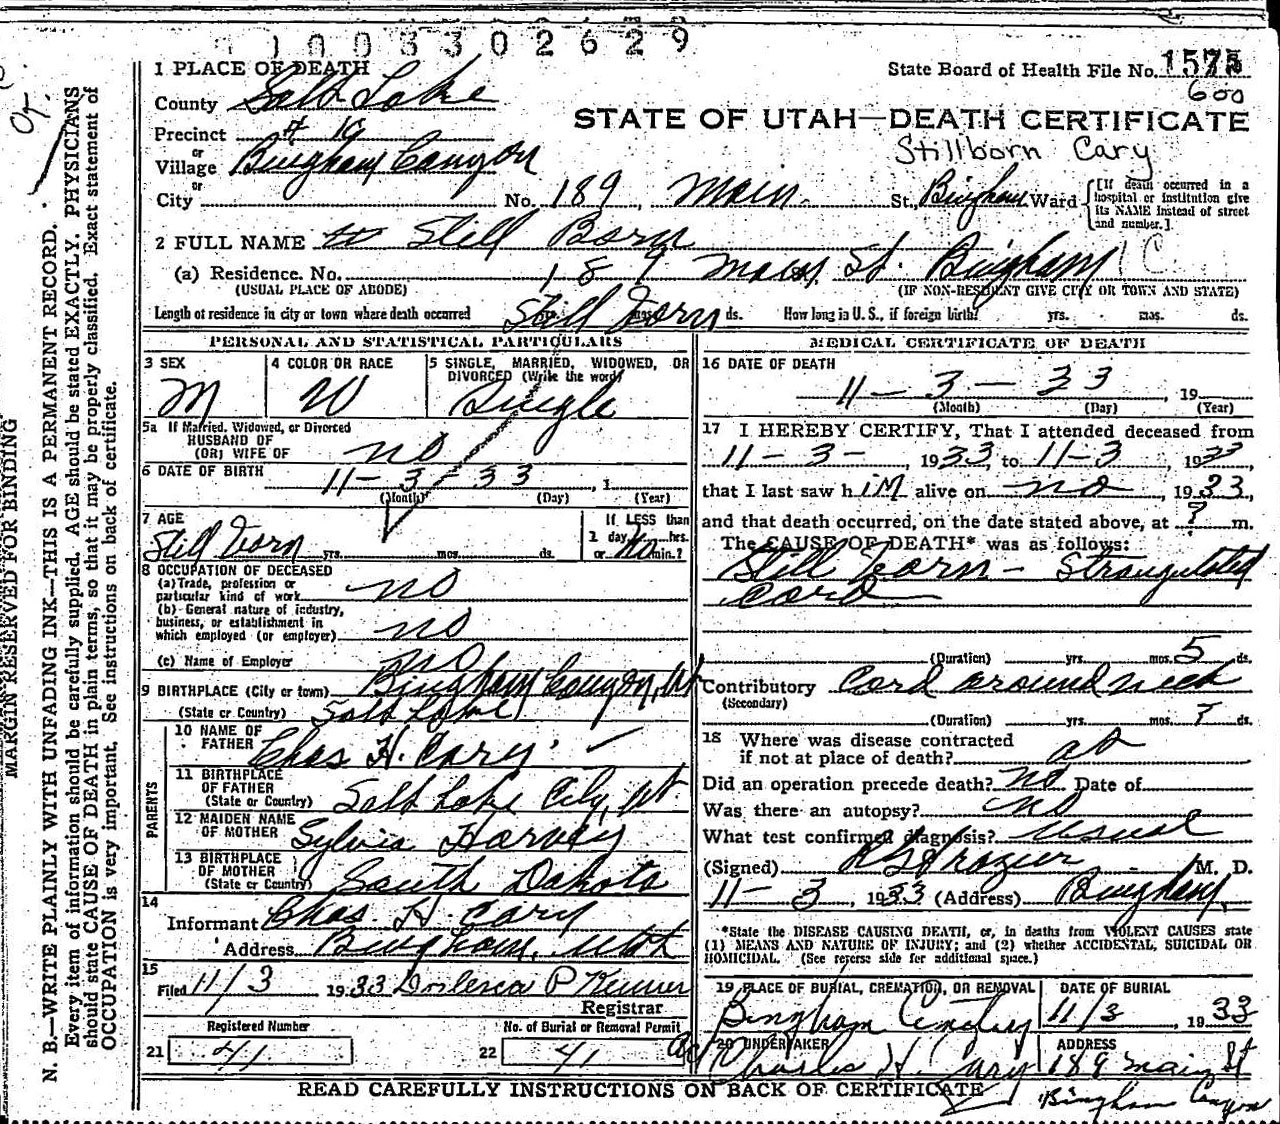 1003302629
State Board of Health File No. 1575
600
STATE OF UTAH—DEATH CERTIFICATE
Stillborn Cary
1 PLACE OF DEATH
County Salt Lake
Precinct # 19
or
Village Bingham Canyon
or
City No. 189, Main. St., Bingham Ward [If death occurred in a hospital or institution give its NAME instead of street and number.]
2 FULL NAME Still Born
(a) Residence. No. 189 Main St. Bingham C.
(USUAL PLACE OF ABODE) (IF NON-RESIDENT GIVE CITY OR TOWN AND STATE)
Length of residence in city or town where death occurred Still Born yrs. mos. ds. How long in U. S., if foreign birth? yrs. mos. ds.
PERSONAL AND STATISTICAL PARTICULARS
3 SEX M
4 COLOR OR RACE W
5 SINGLE, MARRIED, WIDOWED, OR DIVORCED (Write the word) Single
5a If Married, Widowed, or Divorced
HUSBAND OF
(OR) WIFE OF no
6 DATE OF BIRTH 11-3-33, 1
(Month) (Day) (Year)
7 AGE
Still Born yrs. mos. ds.
If LESS than
1 day, hrs.
or no min.?
8 OCCUPATION OF DECEASED
(a) Trade, profession or
particular kind of work no
(b) General nature of industry,
business, or establishment in
which employed (or employer) no
(c) Name of Employer no
9 BIRTHPLACE (City or town) Bingham Canyon, Ut
(State or Country) Salt Lake
PARENTS
10 NAME OF
FATHER Chas H. Cary
11 BIRTHPLACE
OF FATHER
(State or Country) Salt Lake City, Ut
12 MAIDEN NAME
OF MOTHER Sylvia Harvey
13 BIRTHPLACE
OF MOTHER
(State or Country) South Dakota
14
Informant Chas. H. Cary
Address Bingham, Utah
15
Filed 11/3 1933
Registrar
Registered Number
21 41
No. of Burial or Removal Permit
22 41
MEDICAL CERTIFICATE OF DEATH
16 DATE OF DEATH
11-3-33, 19
(Month) (Day) (Year)
17 I HEREBY CERTIFY, That I attended deceased from
11-3-, 1933, to 11-3, 1933
that I last saw h im alive on no, 1933,
and that death occurred, on the date stated above, at ? m.
The CAUSE OF DEATH* was as follows:
Still Born - Strangulated
Cord
(Duration) yrs. mos. 5 ds.
Contributory Cord around neck
(Secondary)
(Duration) yrs. mos. ? ds.
18 Where was disease contracted
if not at place of death? at
Did an operation precede death? no Date of
Was there an autopsy? no
What test confirmed diagnosis? usual
(Signed) Frazier M. D.
11-3, 1933 (Address) Bingham
*State the DISEASE CAUSING DEATH, or, in deaths from VIOLENT CAUSES state
(1) MEANS AND NATURE OF INJURY; and (2) whether ACCIDENTAL, SUICIDAL OR
HOMICIDAL. (See reverse side for additional space.)
19 PLACE OF BURIAL, CREMATION, OR REMOVAL
Bingham Cemetery
DATE OF BURIAL
11/3, 1933
20 UNDERTAKER
Charles H. Cary
ADDRESS
189 Main St
Bingham Canyon
READ CAREFULLY INSTRUCTIONS ON BACK OF CERTIFICATE
MARGIN RESERVED FOR BINDING
N. B.—WRITE PLAINLY WITH UNFADING INK—THIS IS A PERMANENT RECORD.
Every item of information should be carefully supplied. AGE should be stated EXACTLY. PHYSICIANS
should state CAUSE OF DEATH in plain terms, so that it may be properly classified. Exact statement of
OCCUPATION is very important. See instructions on back of certificate.